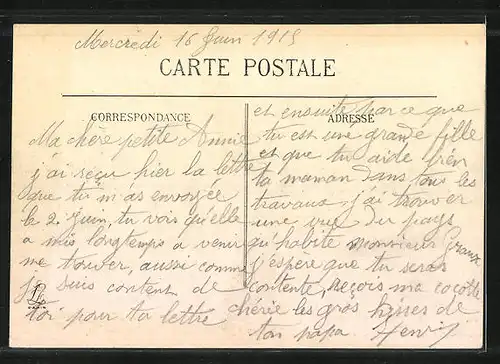 Mercredi 16 Juin 1915
CARTE POSTALE
CORRESPONDANCE
Ma chère petite Annie
j'ai reçu hier la lettre
que tu m'as envoyée
le 2 Juin, tu vois qu'elle
a mis longtemps a venir
me trouver, aussi comme
je suis content de
toi pour ta lettre
ADRESSE
et ensuite parce que
tu est une grande fille
et que tu aide bien
ta maman dans tous les
travaux, j'ai trouver
une vue du pays
qu'habite monsieur
j'espère que tu seras
contente, reçois ma cocotte
chérie les gros bises de
ton papa. Henri